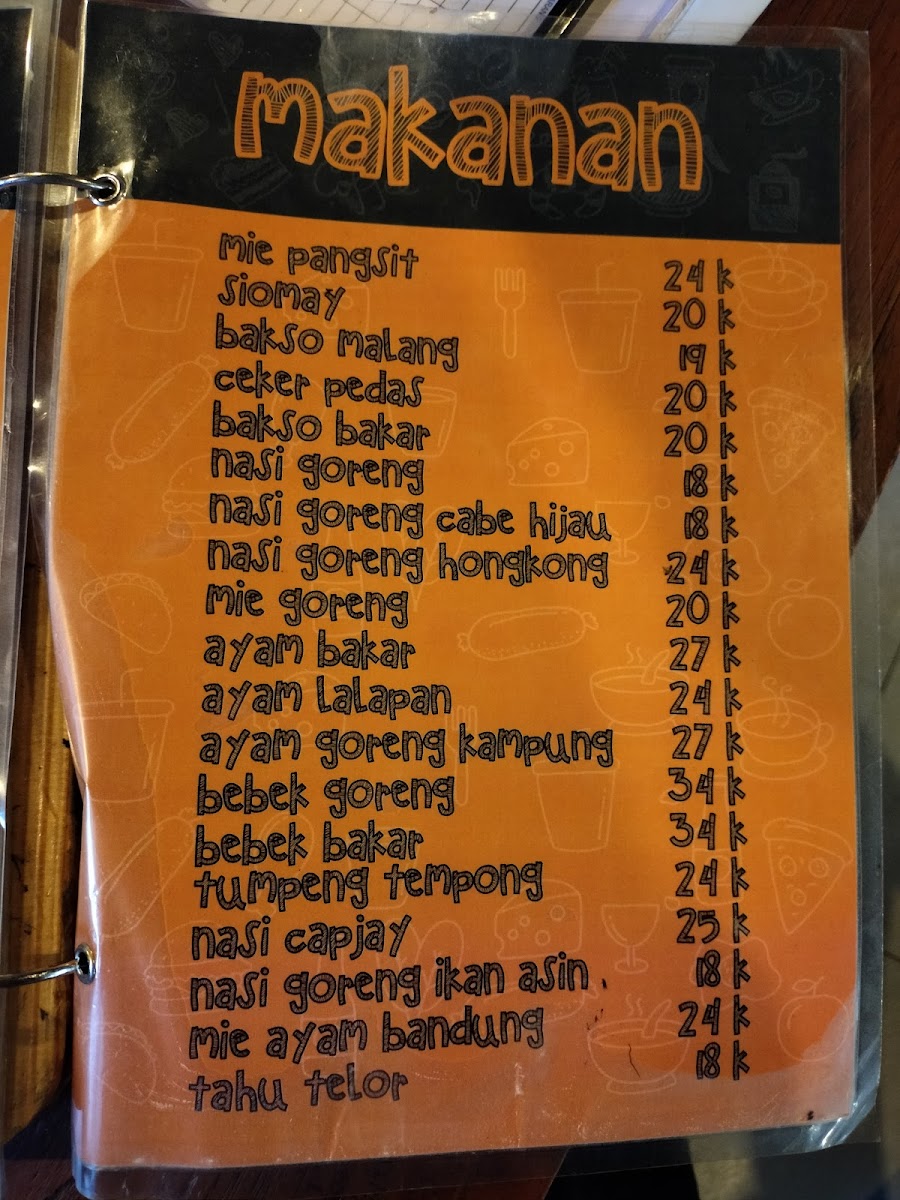 makanan
mie pangsit 24 k
siomay 20 k
bakso malang 19 k
ceker pedas 20 k
bakso bakar 20 k
nasi goreng 18 k
nasi goreng cabe hijau 18 k
nasi goreng hongkong 24 k
mie goreng 20 k
ayam bakar 27 k
ayam lalapan 24 k
ayam goreng kampung 27 k
bebek goreng 34 k
bebek bakar 34 k
tumpeng tempong 24 k
nasi capjay 25 k
nasi goreng ikan asin 18 k
mie ayam bandung 24 k
tahu telor 18 k